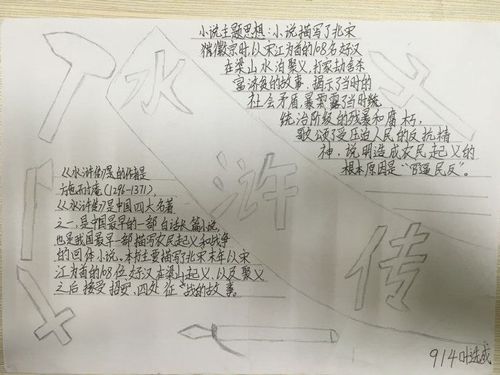 小说主题思想：小说描写了北宋
徽宗时，以宋江为首的108名好汉
在梁山水泊聚义，打家劫舍杀
富济贫的故事，揭示了当时的
社会矛盾，暴露了当时统
统治阶级的残暴和腐朽，
歌颂了受压迫人民的反抗精
神，说明造成农民起义的
根本原因是“官逼民反”。
水
浒
传
《水浒传》的作者是
施耐庵(1296-1371)，
《水浒传》是中国四大名著
之一，是中国最早的一部白话长篇小说，
也是我国最早一部描写农民起义和战争
的回体小说。本书主要描写了北宋末年以宋
江为首的108位好汉在梁山起义，以及聚义
之后接受招安，四处征战的故事。
914叶连成